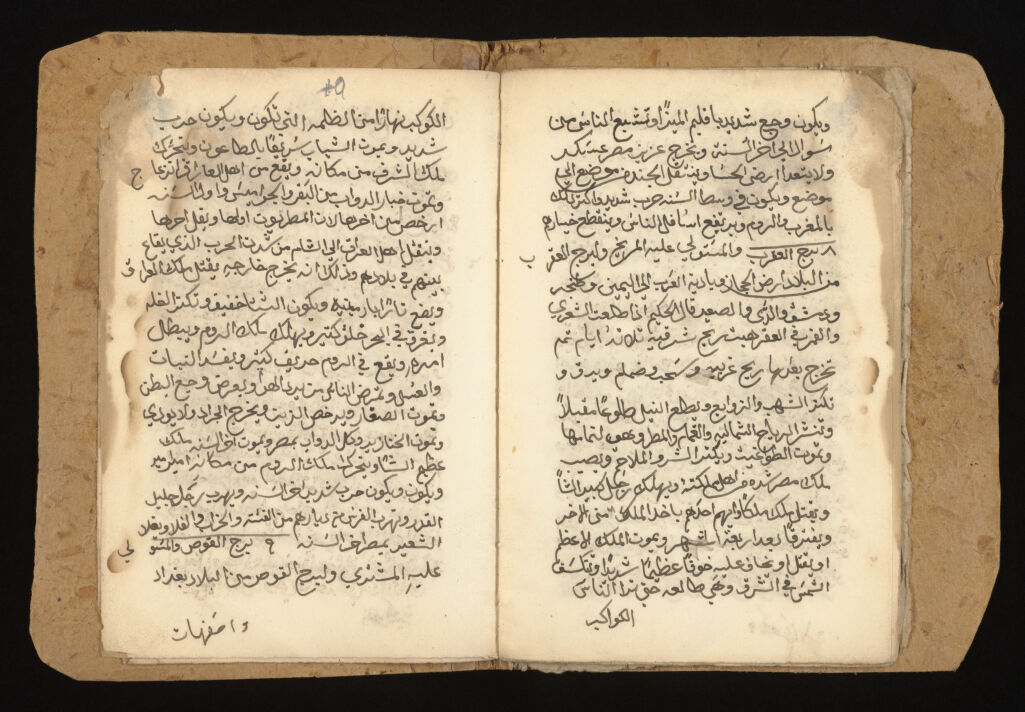 ويكون وجع شديد باقليم الميزا وتشبع الناس من
سوال الي اخر السنة ويخرج عزيز مصر عسكر
ولا يتعدا ارض الحسا وينتقل الجند من موضع الي
موضع ويكون في وسط السنه حرب شديد واكثر ذلك
بالمغرب والروم ويرتفع اسافل الناس وينقطع خيارهم
٨ برج العقرب والمستولي عليه المريخ ولبرج العقر
ب
من البلاد ارض الحجاز وبادية العرب الي اليمن وطنجه
ودمشق والري والصعيد قال الحكيم اذا طلعت الشعري
والقمر في العقرب هبت ريح شرقية ثلاثة ايام ثم
تخرج بطنها ريح غربيه و وضلم وبرق و
تكثر الشهب والزوابع ويطلع النيل طلوعا مقبلا
وتنشر الرياح الشماليه والغمام والمطر
وتموت الطواعيت ويكثر الشر و الملاح ويصب
ملك مصر شدة من اهل مملكته ويهلك رجل كبير الشا
ويقتل ملك ملكا وانهم احدهم ياخد الملك من الاخر
ويفترقا بعد اربعة اشهر ويموت الملك الاعظم
او يقتل او يخاف عليه خوفا عظيما شديدا وتكسف
الشمس في الشرق وهي طالعه حتي ترا الناس
الكواكب
٥٩
الكوكب نهارا من الظلمه التي تكون ويكون حرب
شديد ويموت الشباب سريعا بالطاعون ويتحرك
ملك الشرق من مكانه ويقع من اهل العراق انزعا
ج
ويموت خيار الدواب من البقر والجواميس واول السنه
ارخص من اخرها لان المطر يوت اولها ويقل اخرها
وينتقل اهل العراق الي الشام من شدت الحرب الذي يقاع
بينهم في بلادهم وذلك انه يخرج خارجه يقتل ملك العراق
ويقع نار ويكون الشتا خفيف وتكثر الغله
ويغرق في البحر خلق كثير ويهلك ملك الروم ويبطل
امره ويقع في الروم حريق كثير ويفسد النبات
والعسل ويمرض الناس ويعرض وجع البطن
ويموت الصغار ويرخص الزيت ويخرج الجراد ولا يودي
ويموت الخنازير وكل الدواب بمصر ويموت اخر السنه ملك
عظيم الشا ويتحرك ملك الروم من مكانه
ويكون حرب شديد اخر السنه ويهرب رجل جليل
القدر من الفتنه والخراب والغلا ويغلا
الشعير بمصر اخر السنه ٩ برج القوس والمستو
لي
عليه المشتري ولبرج القوس من البلاد بغداد
واصفهان